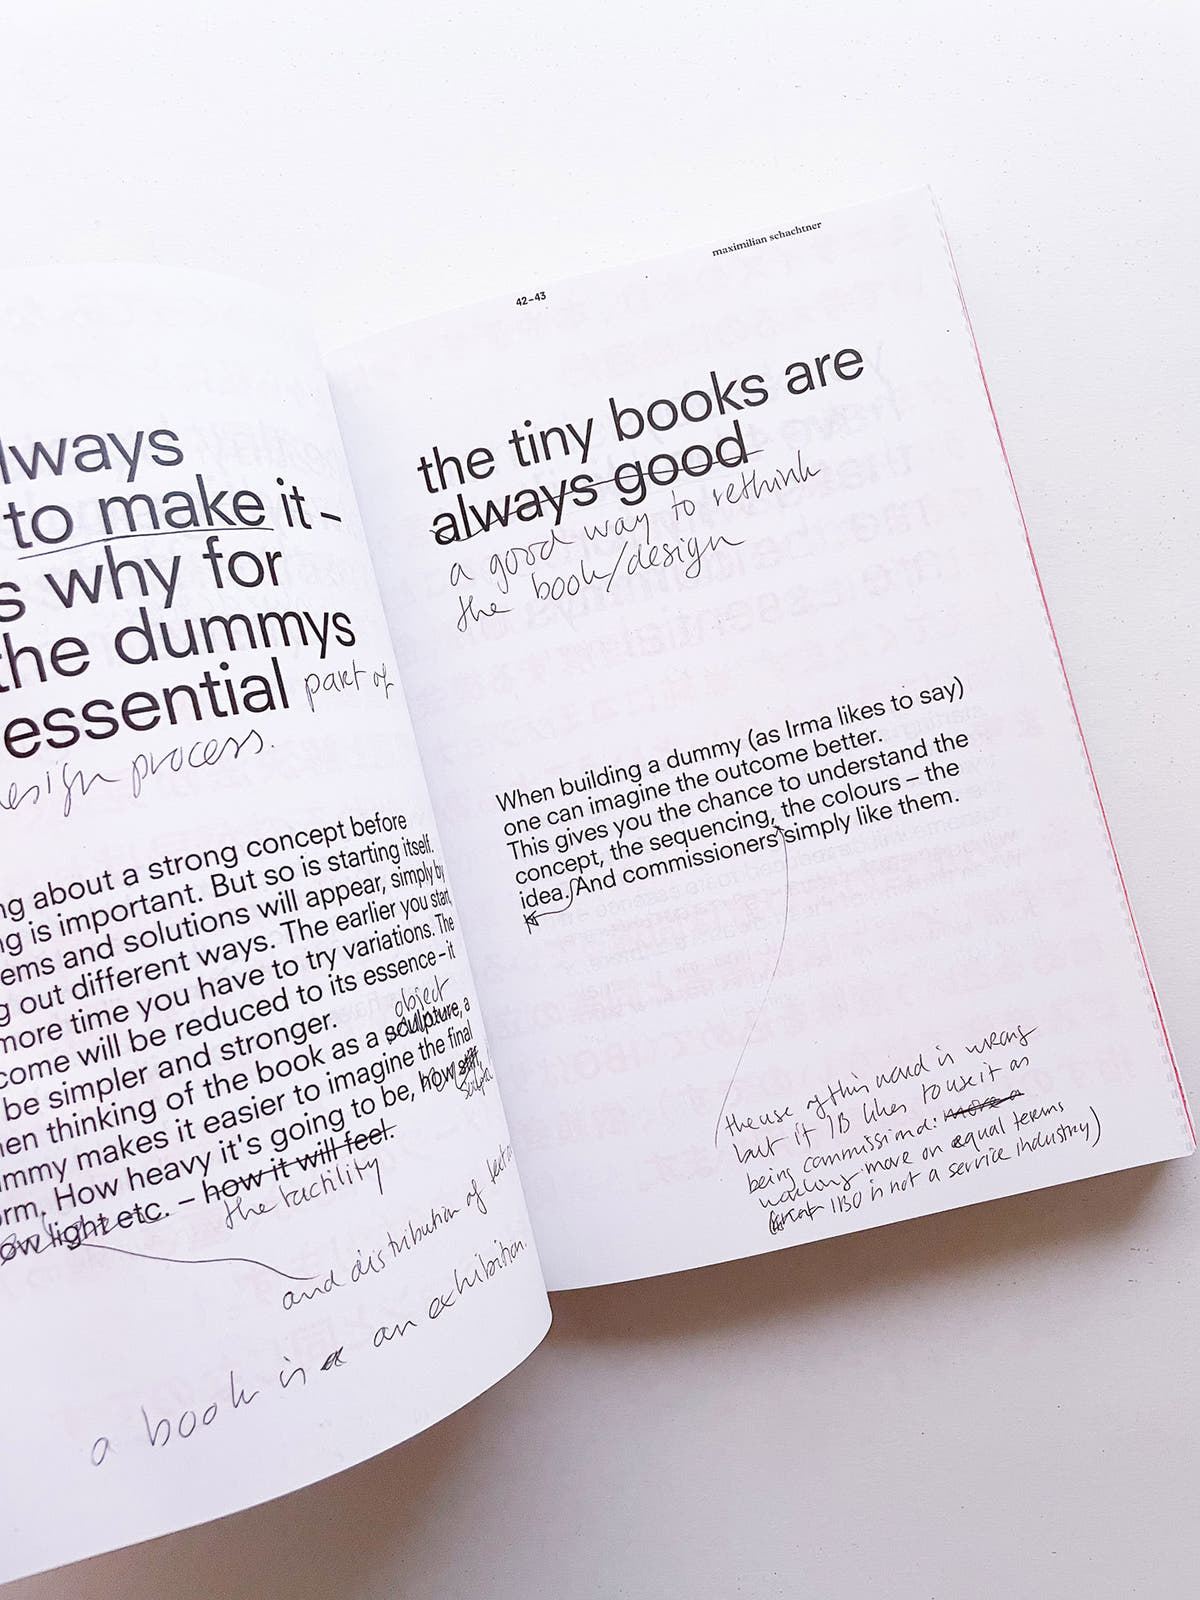 lways
to make it –
s why for
the dummys
essential part of
esign process.
ng about a strong concept before
ng is important. But so is starting itself.
ems and solutions will appear, simply by
g out different ways. The earlier you start,
more time you have to try variations. The
come will be reduced to its essence – it
be simpler and stronger.
object
en thinking of the book as a sculpture, a
ummy makes it easier to imagine the final
orm. How heavy it's going to be, how
ow light etc. – how it will feel.
the tactility
and distribution of
a book is an exhibition.
42–43
maximilian schachtner
the tiny books are
always good
a good way to rethink
the book/design
When building a dummy (as Irma likes to say)
one can imagine the outcome better.
This gives you the chance to understand the
concept, the sequencing, the colours – the
idea. And commissioners simply like them.
the use of this word is wrong
but it IB likes to use it as
being commissioned: more a
working more on equal terms
IBO is not a service industry)